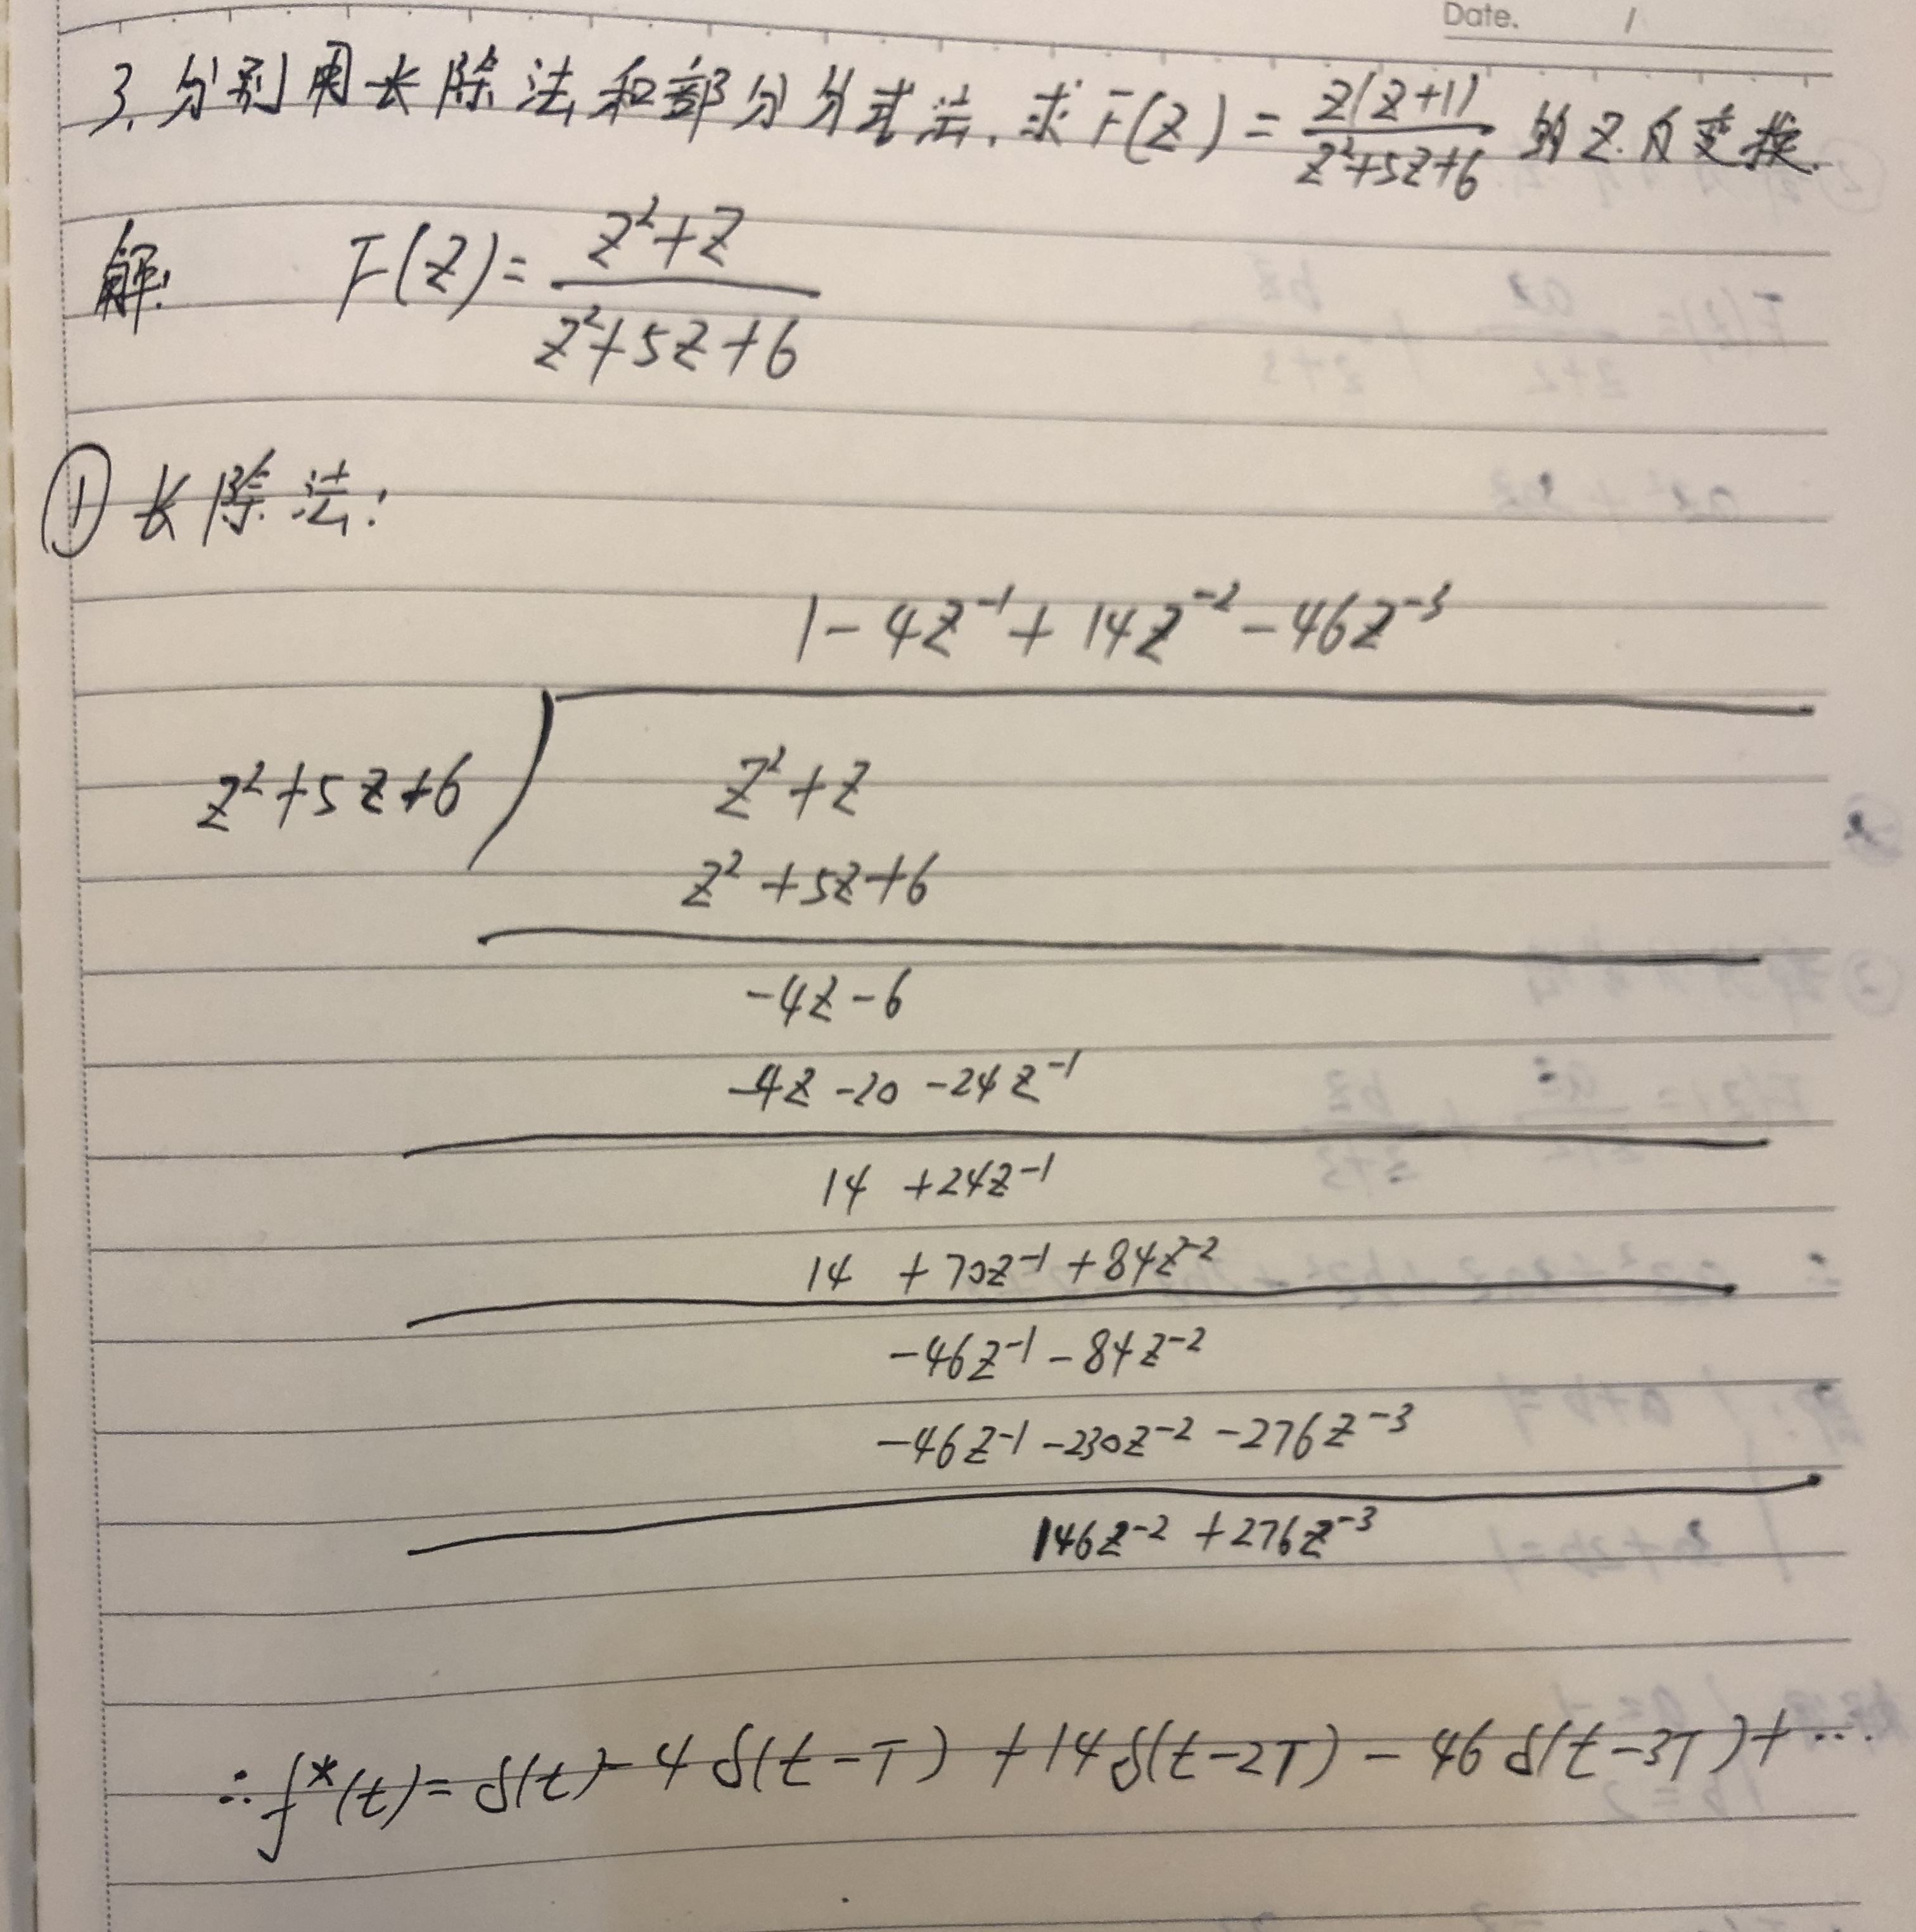 Date. /
3. 分别用长除法和部分分式法, 求 F(Z) = Z(Z+1) / Z²+5Z+6 的 Z 反变换.
解: F(Z) = Z²+Z / Z²+5Z+6
① 长除法:
1 - 4Z⁻¹ + 14Z⁻² - 46Z⁻³
Z²+5Z+6 ) Z²+Z
Z²+5Z+6
-4Z-6
-4Z-20-24Z⁻¹
14 +24Z⁻¹
14 +70Z⁻¹+84Z⁻²
-46Z⁻¹-84Z⁻²
-46Z⁻¹-230Z⁻²-276Z⁻³
146Z⁻²+276Z⁻³
∴ f*(t) = δ(t) - 4δ(t-T) + 14δ(t-2T) - 46δ(t-3T) + ⋯